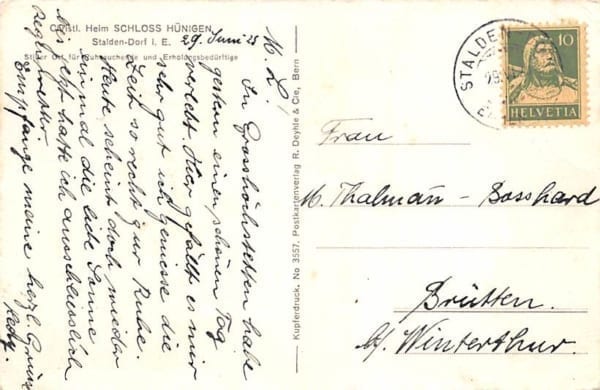 Christl. Heim SCHLOSS HÜNIGEN
Stalden-Dorf i. E.
Stiller Ort für Ruhesuchende und Erholungsbedürftige
29. Juni 28
M. L!
In Grosshöchstetten habe
gestern einen schönen Tag
verlebt. Hier gefällt es mir
sehr gut ich geniesse die
Zeit so recht zur Ruhe.
Heute scheint doch wieder
einmal die liebe Sonne
bis jetzt hatte ich ausschliesslich
Regenwetter
Empfange meine herzl. Grüsse
Kupferdruck. No 3557. Postkartenverlag R. Deyhle & Cie, Bern
STALDEN
29.
10
HELVETIA
Frau
M. Thalmann - Bosshard
Brütten.
b/ Winterthur.